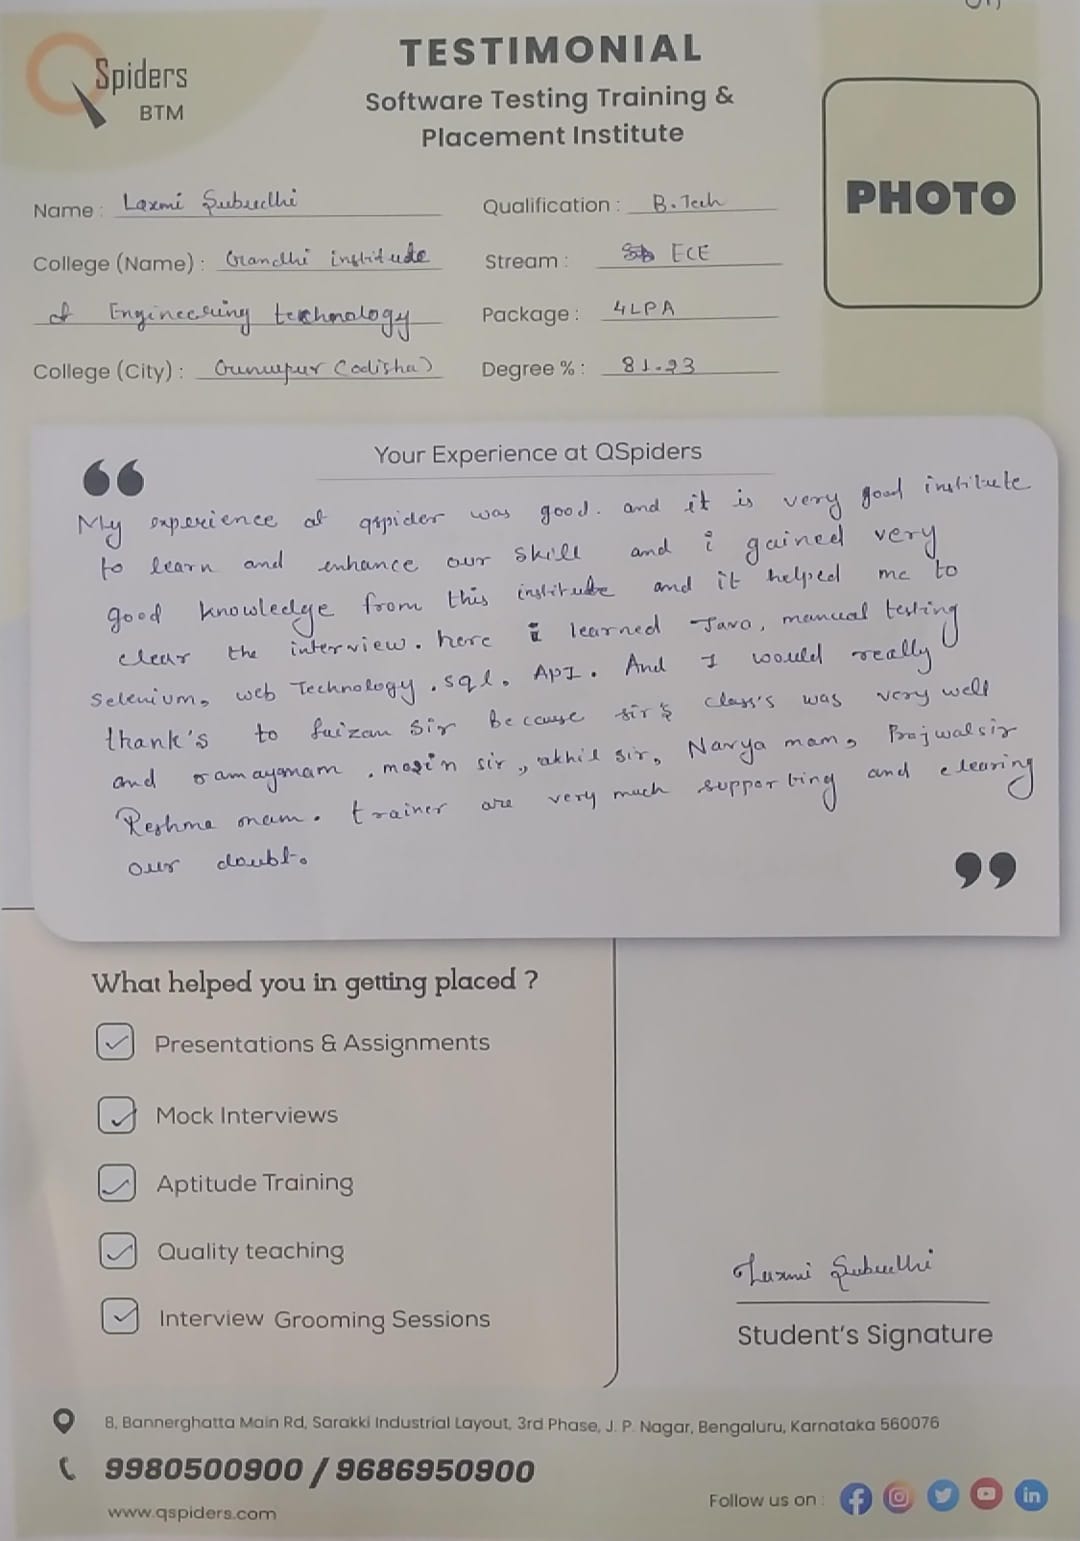 QSpiders
BTM
TESTIMONIAL
Software Testing Training &
Placement Institute
PHOTO
Name : Laxmi Subudhi
Qualification : B.Tech
College (Name) : Gandhi institute
Stream : ECE
of Engineering technology
Package : 4LPA
College (City) : Gunupur (odisha)
Degree % : 81.23
Your Experience at QSpiders
My experience at qspider was good. and it is very good institute
to learn and enhance our skill and i gained very
good knowledge from this institute and it helped me to
clear the interview. here i learned Java, manual testing
Selenium, web Technology, sql. API. And I would really
thank's to faizan sir Because sir's class's was very well
and ramayamam, mosin sir, akhil sir, Navya mam, Prajwalsir
Reshma mam. trainer are very much supporting and clearing
our doubt.
What helped you in getting placed ?
Presentations & Assignments
Mock Interviews
Aptitude Training
Quality teaching
Interview Grooming Sessions
Laxmi Subudhi
Student's Signature
8, Bannerghatta Main Rd, Sarakki Industrial Layout, 3rd Phase, J. P. Nagar, Bengaluru, Karnataka 560076
9980500900 / 9686950900
www.qspiders.com
Follow us on :